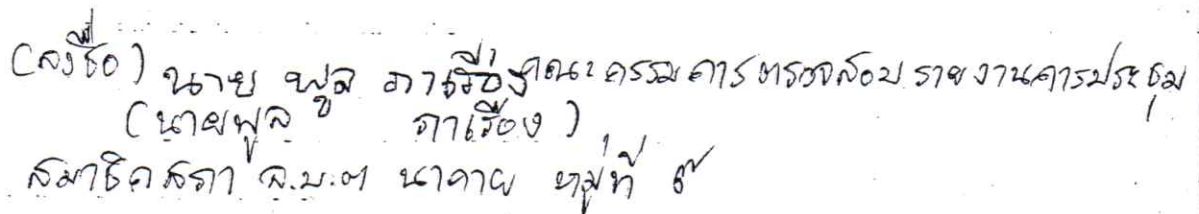 (ลงชื่อ) นาย พูล ภาเรือง คณะกรรมการตรวจสอบรายงานการประชุม
(นายพูล ภาเรือง)
สมาชิกสภา อ.บ.ต นาคาย หมู่ที่ ๙